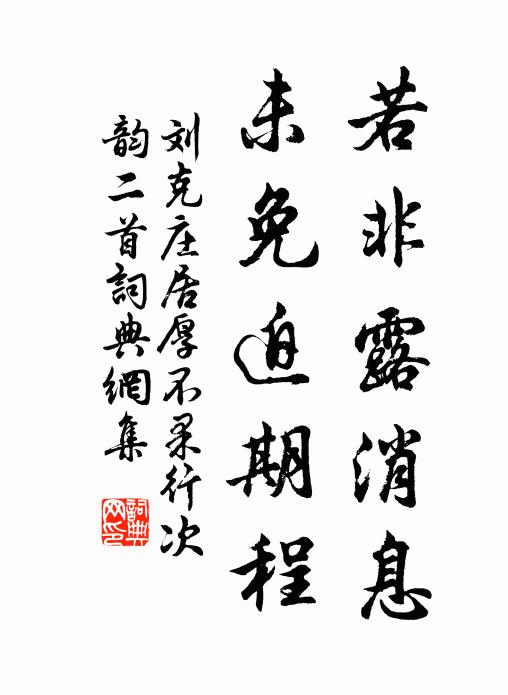 若非露消息
未免迫期程
刘克庄居厚不果行次
韵二首詞典網集
詞典
网印